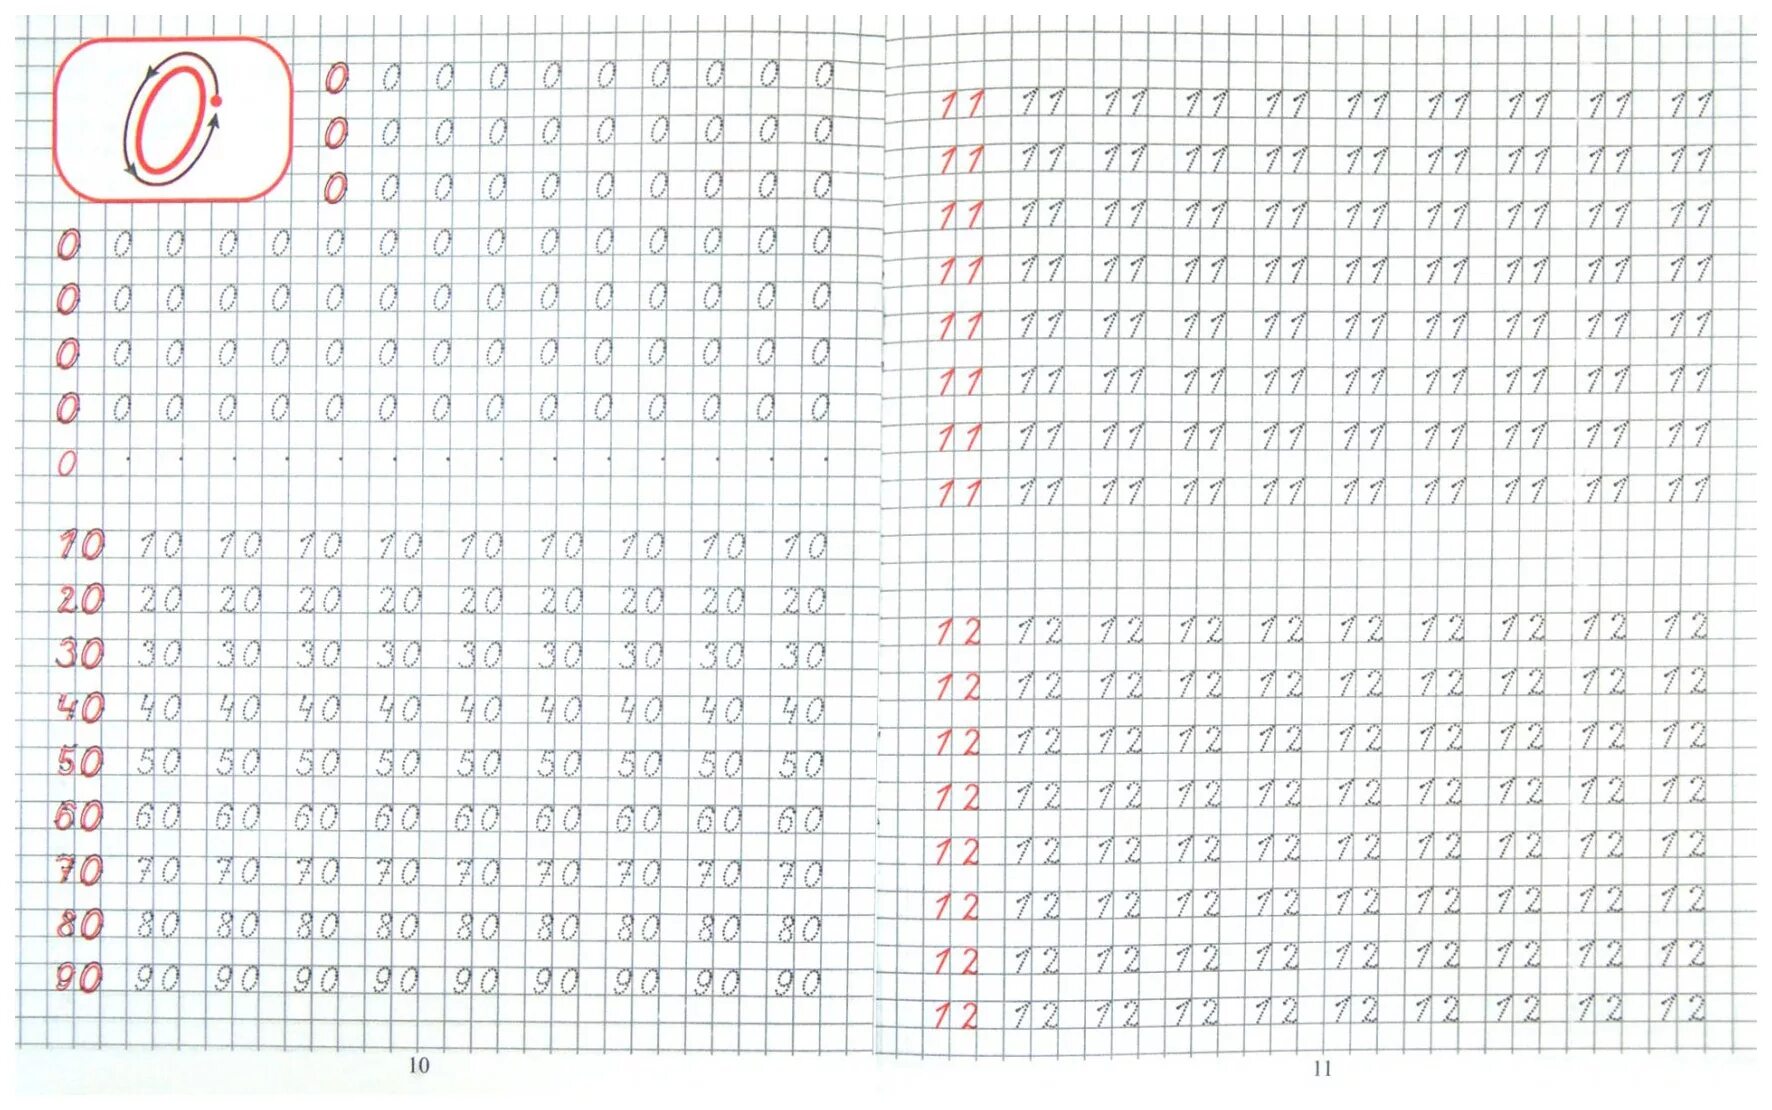 0
0 0 0 0 0 0 0 0 0 0
0 0 0 0 0 0 0 0 0 0
0 0 0 0 0 0 0 0 0 0
0 0 0 0 0 0 0 0 0 0 0 0 0 0 0
0 0 0 0 0 0 0 0 0 0 0 0 0 0 0
0 0 0 0 0 0 0 0 0 0 0 0 0 0 0
0 0 0 0 0 0 0 0 0 0 0 0 0 0 0
0 . . . . . . . . . . . . . .
10 10 10 10 10 10 10 10 10 10
20 20 20 20 20 20 20 20 20 20
30 30 30 30 30 30 30 30 30 30
40 40 40 40 40 40 40 40 40 40
50 50 50 50 50 50 50 50 50 50
60 60 60 60 60 60 60 60 60 60
70 70 70 70 70 70 70 70 70 70
80 80 80 80 80 80 80 80 80 80
90 90 90 90 90 90 90 90 90 90
10
11 11 11 11 11 11 11 11 11 11
11 11 11 11 11 11 11 11 11 11
11 11 11 11 11 11 11 11 11 11
11 11 11 11 11 11 11 11 11 11
11 11 11 11 11 11 11 11 11 11
11 11 11 11 11 11 11 11 11 11
11 11 11 11 11 11 11 11 11 11
11 11 11 11 11 11 11 11 11 11
12 12 12 12 12 12 12 12 12 12
12 12 12 12 12 12 12 12 12 12
12 12 12 12 12 12 12 12 12 12
12 12 12 12 12 12 12 12 12 12
12 12 12 12 12 12 12 12 12 12
12 12 12 12 12 12 12 12 12 12
12 12 12 12 12 12 12 12 12 12
12 12 12 12 12 12 12 12 12 12
11